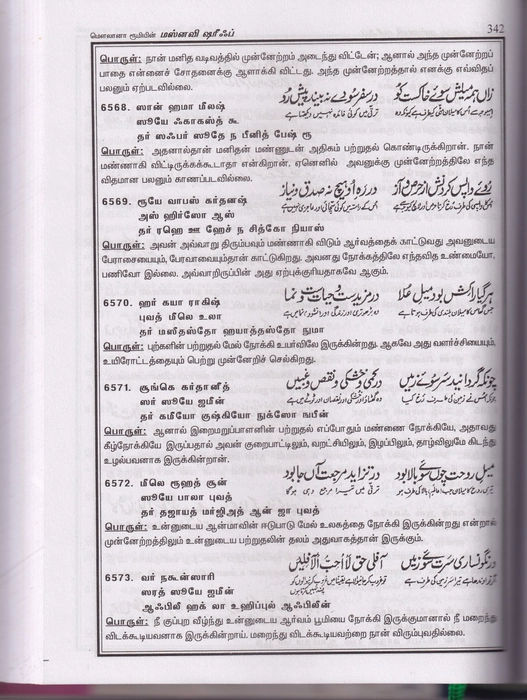 மௌலானா ரூமியின் மஸ்னவி ஷரீஃப் 342
பொருள்: நான் மனித வடிவத்தில் முன்னேற்றம் அடைந்து விட்டேன்; ஆனால் அந்த முன்னேற்றப்
பாதை என்னைச் சோதனைக்கு ஆளாக்கி விட்டது. அந்த முன்னேற்றத்தால் எனக்கு எவ்விதப்
பலனும் ஏற்படவில்லை.
6568. ஸான் ஹமா மீலஷ்
ஸூயே ஃகாகஸ்த் கூ
தர் ஸஃபர் ஸூதே ந பீனித் பேஷ் ரூ
زاں ہمہ میلش سوئے خاکست کو
در سفر سودے نہ بیند پیش رو
பொருள்: அதனால்தான் மனிதன் மண்ணுடன் அதிகம் பற்றுதல் கொண்டிருக்கிறான். நான்
மண்ணாகி விட்டிருக்கக்கூடாதா என்கிறான். ஏனெனில் அவனுக்கு முன்னேற்றத்திலே எந்த
விதமான பலனும் காணப்படவில்லை.
6569. ரூயே வாபஸ் கர்தனஷ்
அஸ் ஹிர்ஸோ ஆஸ்
தர் ரஹெ ஊ ஹேச் ந சித்கோ நியாஸ்
روئے واپس کردنش از حرص و آز
در رہ او ہیچ نہ صدق و نیاز
பொருள்: அவன் அவ்வாறு திரும்பவும் மண்ணாகி விடும் ஆர்வத்தைக் காட்டுவது அவனுடைய
பேராசையையும், பேரவாவையும்தான் காட்டுகிறது. அவனது நோக்கத்திலே எந்தவித உண்மையோ,
பணிவோ இல்லை. அவ்வாறிருப்பின் அது ஏற்புக்குரியதாகவே ஆகும்.
6570. ஹர் கயா ராகிஷ்
புவத் மீலெ உலா
தர் மஸீதஸ்தோ ஹயாத்தஸ்தோ நுமா
ہر گیا راکش بود میل علا
در مزیدست و حیات و نما
பொருள்: புற்களின் பற்றுதல் மேல் நோக்கி உயர்விலே இருக்கிறது. ஆகவே அது வளர்ச்சியையும்,
உயிரோட்டத்தையும் பெற்று முன்னேறிச் செல்கிறது.
6571. சூங்கெ கர்தானீத்
ஸர் ஸூயே ஜமீன்
தர் கமீயோ குஷ்கியோ நுக்ஸோ ஙபீன்
چونکہ گردانید سر سوئے زمیں
در کمی و خشکی و نقص و غبیں
பொருள்: ஆனால் இறைமறுப்பாளனின் பற்றுதல் எப்போதும் மண்ணை நோக்கியே, அதாவது
கீழ்நோக்கியே இருப்பதால் அவன் குறைபாட்டிலும், வறட்சியிலும், இழப்பிலும், தாழ்விலுமே கிடந்து
உழல்பவனாக இருக்கின்றான்.
6572. மீலெ ரூஹத் சூன்
ஸூயே பாலா புவத்
தர் தஜாயத் மர்ஜிஅத் ஆன் ஜா புவத்
میل روحت چوں سوئے بالا بود
در تزاید مرجعت آں جا بود
பொருள்: உன்னுடைய ஆன்மாவின் ஈடுபாடு மேல் உலகத்தை நோக்கி இருக்கின்றது என்றால்
முன்னேற்றத்திலும் உன்னுடைய பற்றுதலின் தலம் அதுவாகத்தான் இருக்கும்.
6573. வர் நகூன்ஸாரி
ஸரத் ஸூயே ஜமீன்
ஆஃபிலீ ஹக் லா உஹிப்புல் ஆஃபிலீன்
ور نگوں ساری سرت سوئے زمیں
آفلی حق لا احب الآفلین
பொருள்: நீ குப்புற வீழ்ந்து உன்னுடைய ஆர்வம் பூமியை நோக்கி இருக்குமானால் நீ மறைந்து
விடக்கூடியவனாக இருக்கின்றாய். மறைந்து விடக்கூடியவற்றை நான் விரும்புவதில்லை.